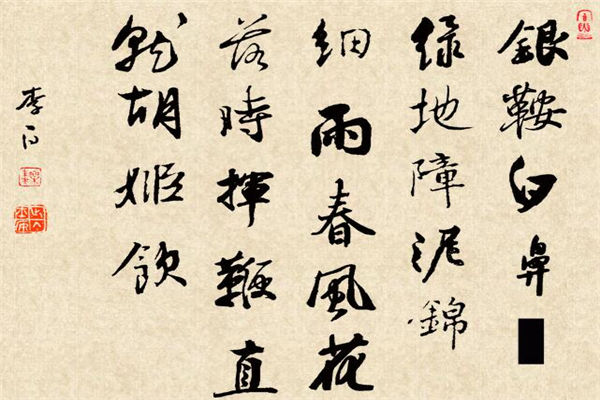 銀鞍白鼻
綠地障泥錦
細雨春風花
落時揮鞭直
就胡姬飲
李白